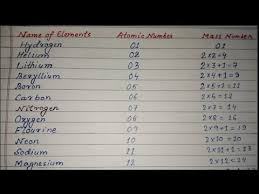 Name of Elements Atomic Number Mass Number
Hydrogen 01 01
Helium 02 2×2=4
Lithium 03 2×3+1=7
Beryllium 04 2×4+1=9
Boron 05 2×5+1=11
Carbon 06 2×6=12
Nitrogen 07 2×7=14
Oxygen 08 2×8=16
Flourine 09 2×9+1=19
Neon 10 2×10=20
Sodium 11 2×11+1=23
Magnesium 12 2×12=24